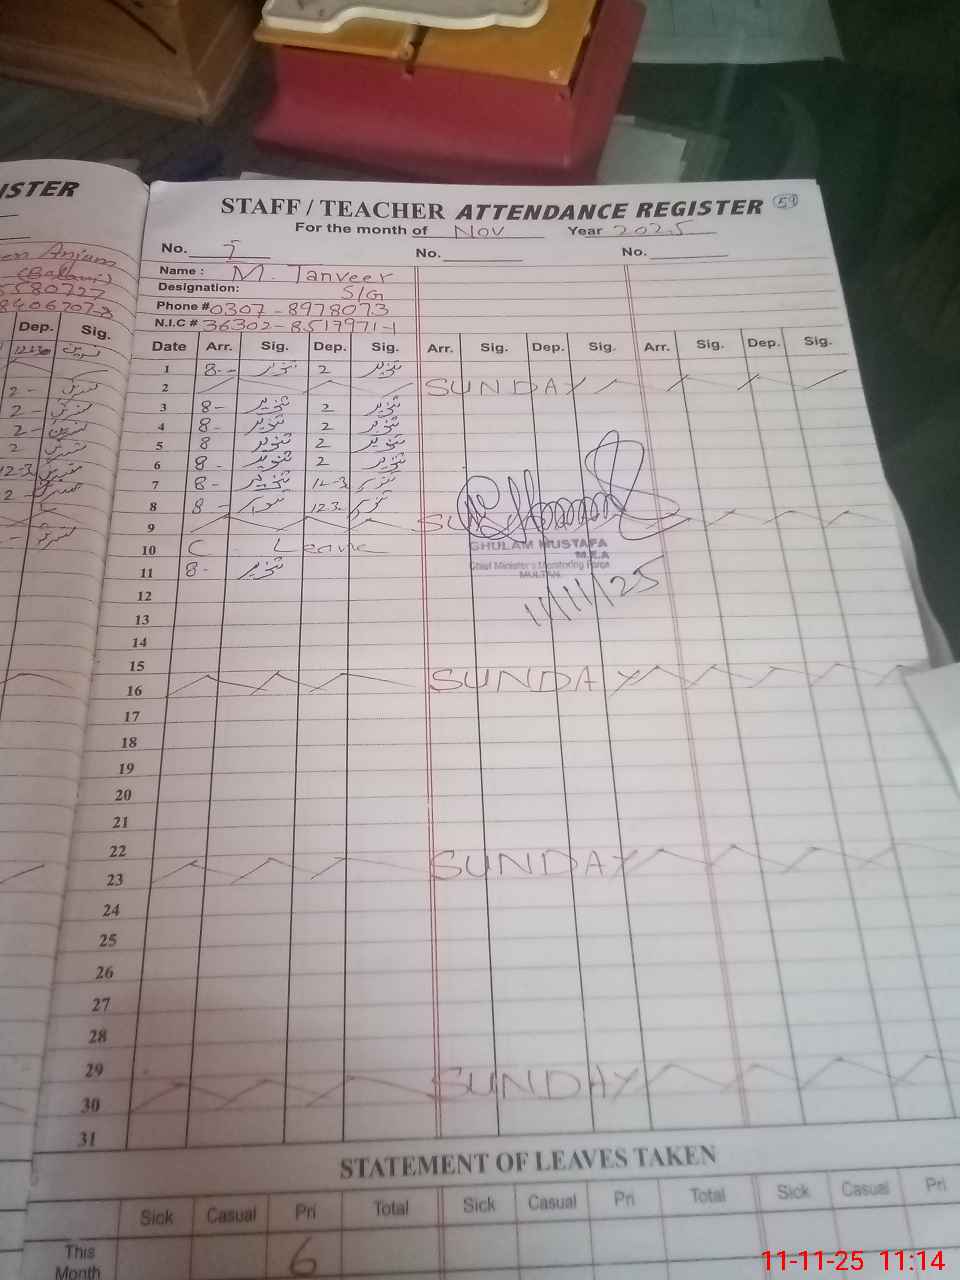 ISTER
Anjum
Dep. Sig.
STAFF / TEACHER ATTENDANCE REGISTER 59
For the month of Nov Year 2025
No. No. No.
Name : M. Tanveer
Designation: S/G
Phone # 0307-8978073
N.I.C # 36302-8517971-1
Date Arr. Sig. Dep. Sig. Arr. Sig. Dep. Sig. Arr. Sig. Dep. Sig.
1 8-- تنویر 2 تنویر
2 SUNDAY
3 8- تنویر 2 تنویر
4 8- تنویر 2 تنویر
5 8 تنویر 2 تنویر
6 8- تنویر 2 تنویر
7 8- تنویر 12-3 تنویر
8 8- تنویر 123 تنویر
9
10 C. Leave
11 8- تنویر
GHULAM MUSTAFA
M.E.A
Chief Minister's Monitoring Force
MULTAN
11/11/25
12
13
14
15
16 SUNDAY
17
18
19
20
21
22
23 SUNDAY
24
25
26
27
28
29
30 SUNDAY
31
STATEMENT OF LEAVES TAKEN
Sick Casual Pri Total Sick Casual Pri Total Sick Casual Pri
This Month 6
11-11-25 11:14